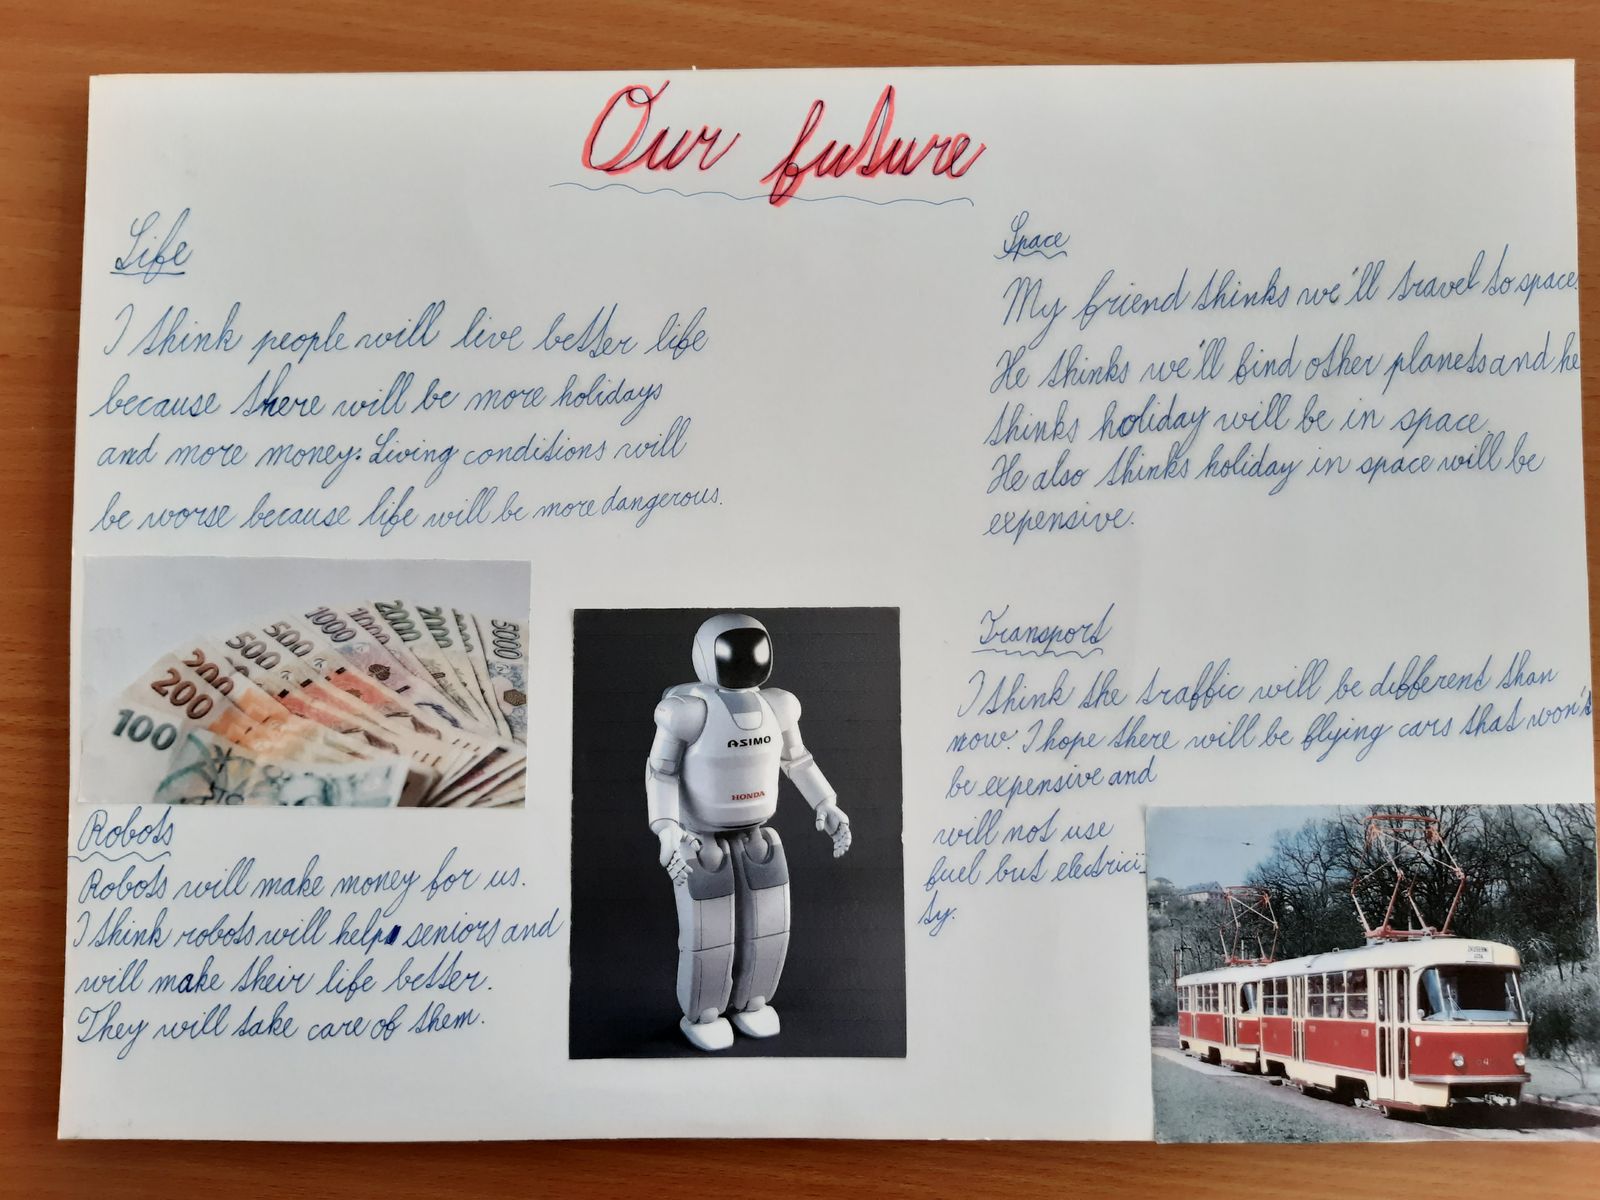 Our future
Life
I think people will live better life
because there will be more holidays
and more money. Living conditions will
be worse because life will be more dangerous.
100
200
200
500
500
1000
1000
2000
2000
5000
Robots
Robots will make money for us.
I think robots will help seniors and
will make their life better.
They will take care of them.
ASIMO
HONDA
Space
My friend thinks we'll travel to space.
He thinks we'll find other planets and he
thinks holiday will be in space.
He also thinks holiday in space will be
expensive.
Transport
I think the traffic will be different than
now. I hope there will be flying cars that won't
be expensive and
will not use
fuel but electrici-
ty.